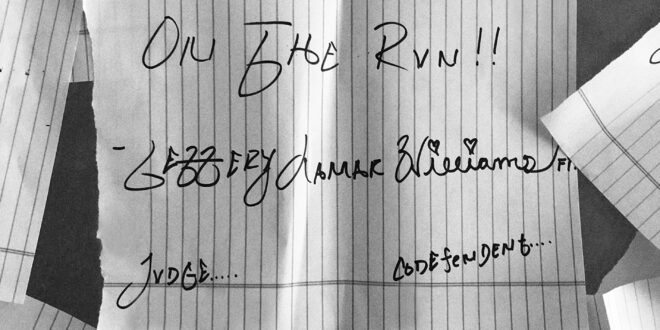 ON THE RUN!!
- JEFFERY LAMAR Williams
JUDGE.....
CODEfeNDENt....